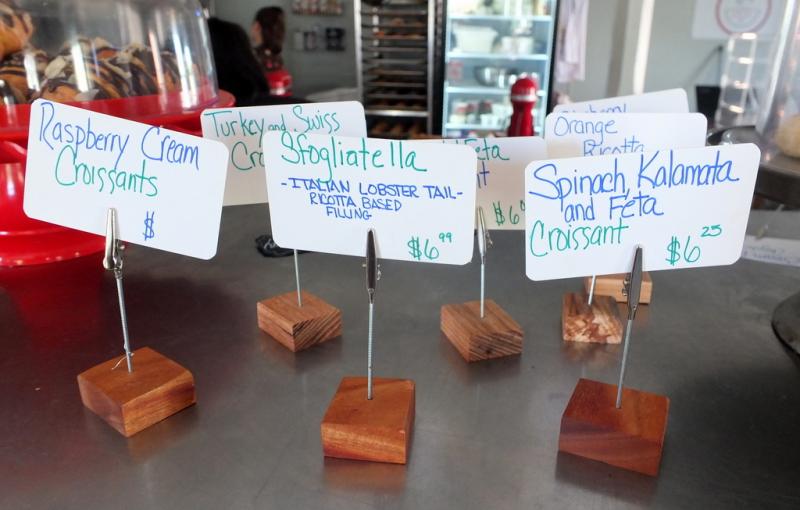 Raspberry Cream
Croissants
$
Turkey and Swiss
Sfogliatella
-ITALIAN LOBSTER TAIL-
RICOTTA BASED
FILLING
$6.99
Feta
$6
Orange
Ricotta
Spinach, Kalamata
and Feta
Croissant
$6.25